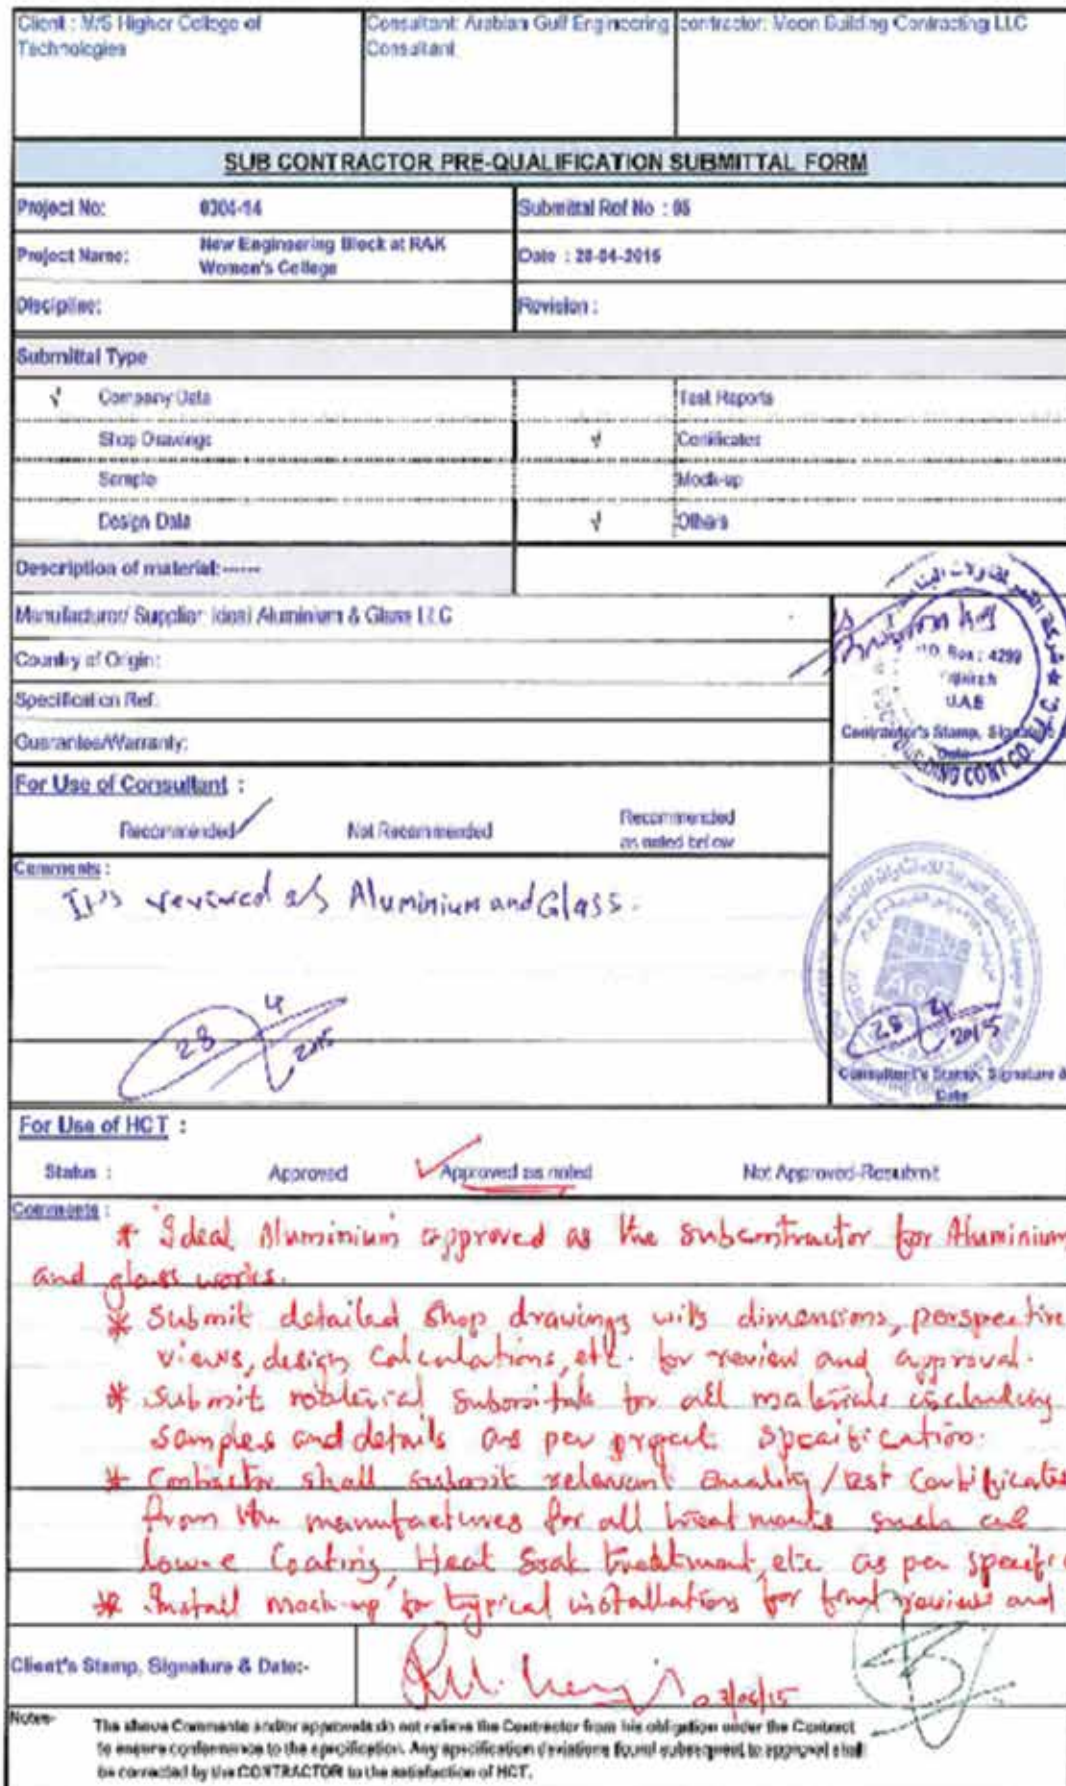 Client : M/S Higher College of
Technologies
Consultant: Arabian Gulf Engineering
Consultant
contractor: Moon Building Contracting LLC
SUB CONTRACTOR PRE-QUALIFICATION SUBMITTAL FORM
Project No: 0304-14
Submittal Ref No : 05
Project Name: New Engineering Block at RAK
Women's College
Date : 28-04-2015
Discipline:
Revision :
Submittal Type
√ Company Data
Test Reports
Shop Drawings
√ Certificates
Sample
Mock-up
Design Data
√ Others
Description of material:-----
Manufacturer/ Supplier: Ideal Aluminium & Glass LLC
Country of Origin:
Specification Ref:
Guarantee/Warranty:
P.O. Box : 4299
Fujairah
U.A.E
BUILDING CONT CO. L.L.C.
Contractor's Stamp, Signature &
Date
For Use of Consultant :
Recommended
Not Recommended
Recommended
as noted below
Comments :
It's reviewed as Aluminium and Glass.
28 4
2015
28 4
2015
Consultant's Stamp, Signature &
Date
For Use of HCT :
Status :
Approved
Approved as noted
Not Approved-Resubmit
Comments :
* 'Ideal Aluminium' approved as the subcontractor for Aluminium
and glass works.
* Submit detailed shop drawings with dimensions, perspective
views, design calculations, etc. for review and approval.
* Submit material submittals for all materials including
samples and details as per project specification.
* Contractor shall submit relevant quality/test certificates
from the manufactures for all treatments such as
low-e coating, Heat Soak treatment, etc as per specific
* Install mock-up for typical installations for final review and
Client's Stamp, Signature & Date:-
Notes-
The above Comments and/or approvals do not relieve the Contractor from his obligation under the Contract
to ensure conformance to the specification. Any specification deviations found subsequent to approval shall
be corrected by the CONTRACTOR to the satisfaction of HCT.